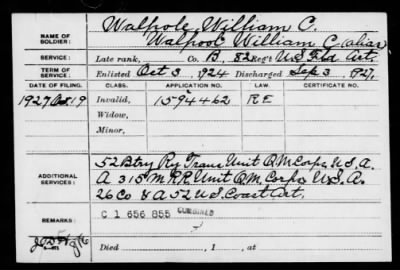 Walpole, William C.
NAME OF SOLDIER: Walpool, William C (alias)
SERVICE: Late rank, Co. B, 82 Reg't U.S. Fld Art.
TERM OF SERVICE: Enlisted Oct 3, 1924 Discharged Sep 3, 1927.
DATE OF FILING. CLASS. APPLICATION NO. LAW. CERTIFICATE NO.
1927 Oct 19 Invalid, 1594462 RE
Widow,
Minor,
52 Btry Ry Trans Unit Q.M. Corps, U.S.A.
ADDITIONAL SERVICES: A 315 M.R.R. Unit Q.M. Corps, U.S.A.
26 Co & A 52 U.S. Coast Art.
REMARKS: C 1 656 855 COMBINED
Died , 1 , at